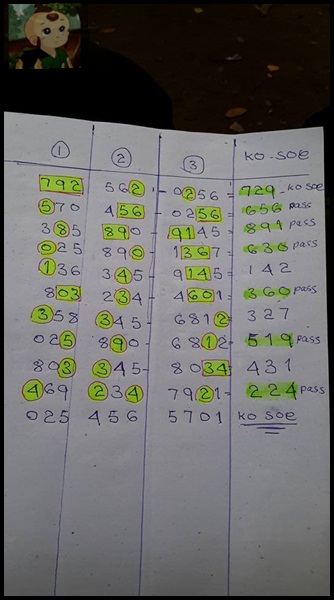 ① ② ③ KO-SOE
792 562 - 0256 = 729 - KO SOE
570 456 - 0256 = 656 pass
385 890 - 9145 = 891 pass
025 890 - 1367 = 636 pass
136 345 - 9145 = 142
803 234 - 4601 = 360 pass
358 345 - 6812 = 327
025 890 - 6812 = 519 pass
803 345 - 8034 = 431
469 234 - 7921 = 224 pass
025 456 5701 KO SOE